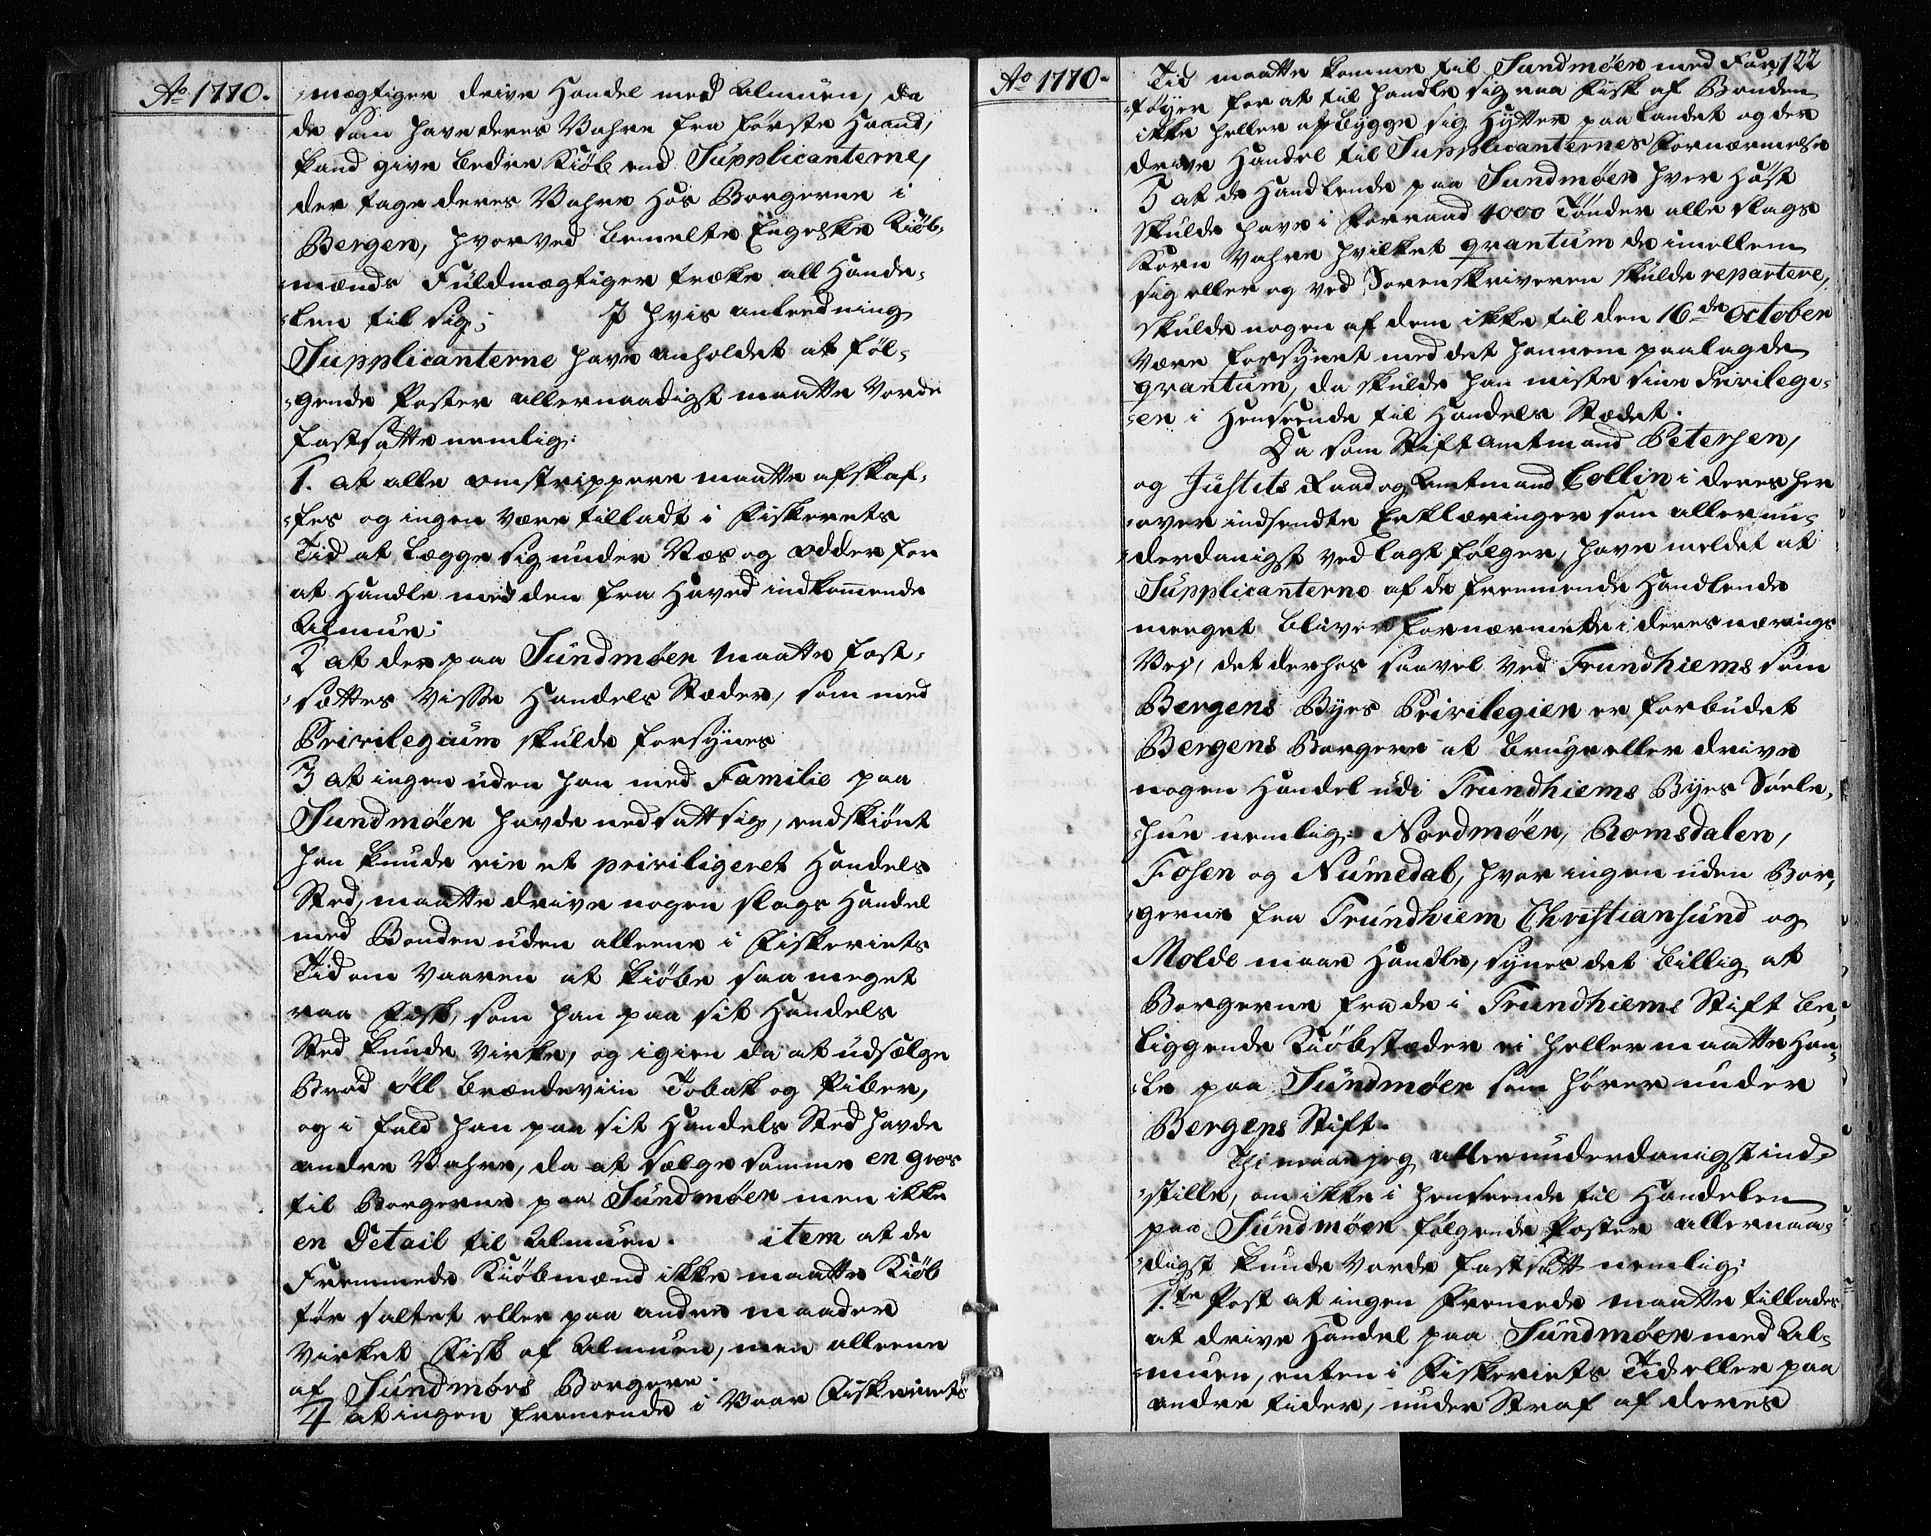 Ao 1770.
mægtiger drive Handel med Almuen, da
de som have deres Vahre fra første Haand,
kand give bedre Kiøb end Supplicanterne,
der tage deres Vahre hos Borgerne i
Bergen, hvorved bemelte Engelske Kiøb-
mænds Fuldmægtiger trække all Hande-
len til sig; I hvis anledning
Supplicanterne have anholdet at føl-
gende Poster allernaadigst maatte vorde
fastsatte nemlig:
1. at alle omstrippere maatte afskaf-
fes og ingen være tilladt i Fiskeriets
Tid at lægge sig under Næs og Odder for
at Handle med den fra Haved indkommende
Almue;
2 at der paa Sundmøer maatte fast-
sættes visse Handels Stæder, som med
Privilegium skulde forsynes
3 at ingen uden han med Familie paa
Sundmøer havde nedsatt sig, endskiønt
han kunde eie et priviligeret Handels
Sted, maatte drive nogen slags Handel
med Bonden uden alleene i Fiskeriets
Tid om Vaaren at kiøbe saa meget
raa Fisk, som han paa sit Handels
Sted kunde virke, og igien da at udsælge
Brød øll Brændeviin Tobak og Piber,
og i fald han paa sit Handels Sted havde
andre Vahre, da at sælge samme en gros
til Borgerne paa Sundmøer men ikke
en Detail til Almuen. item at de
Fremmede Kiøbmænd ikke maatte Kiøb
tør saltet eller paa anden maader
virket Fisk af Almuen, men alleene
af Sundmørs Borgere.
4 at ingen fremmende i Vaar Fiskeriets
Ao 1770.
122
Tid maatte komme til Sundmøer med Far-
tøyer for at til handle sig raa Fisk af Bonden
ikke heller at bygge sig Hytter paa Landet og der
drive Handel til Supplicanternes Fornærmelse
5 at de Handlende paa Sundmøer hver Høst
skulde have i Forraad 4000 Tønder alle slags
Korn Vahre hvilket qvantum de imellem
sig eller og ved Sorenskriveren skulde repartere,
skulde nogen af dem ikke til den 16de October
være forsynet med det hannem paalagde
qvantum, da skulde han miste sine Privilegi-
en i Henseende til Handels Stædet.
Da som Stiftamtmand Petersen,
og Justits Raad og Amtmand Collin i deres her
over indsendte Erklæringer som allerun-
derdanigst vedlagt følger, have meldet at
Supplicanterne af de fremmende Handlende
meeget bliver fornærmede i deres nærings
Vej, det derhos saavel ved Trundhiems som
Bergens Byes Privilegien er forbudet
Bergens Borgere at bruge eller drive
nogen Handel udi Trundhiems Byes Søele-
hue nemlig: Nordmøer, Romsdalen,
Fosen og Numedal, hvor ingen uden Bor-
gerne fra Trundhiem Christiansund og
Molde maae Handle, synes det billig at
Borgerne fra de i Trundhiems Stift be-
liggende Kiøbstæder ei heller maatte Han-
le paa Sundmøer som hører under
Bergens Stift.
Thi maae jeg allerunderdanigst ind-
stille, om ikke i henseende til Handelen
paa Sundmøer følgende Poster allernaa-
digst kunde vorde fastsatt nemlig:
1.te Post at ingen Fremede maatte tillades
at drive Handel paa Sundmøer med Al-
muen, enten i Fiskeriets Tid eller paa
andre tider, under Straf af deres